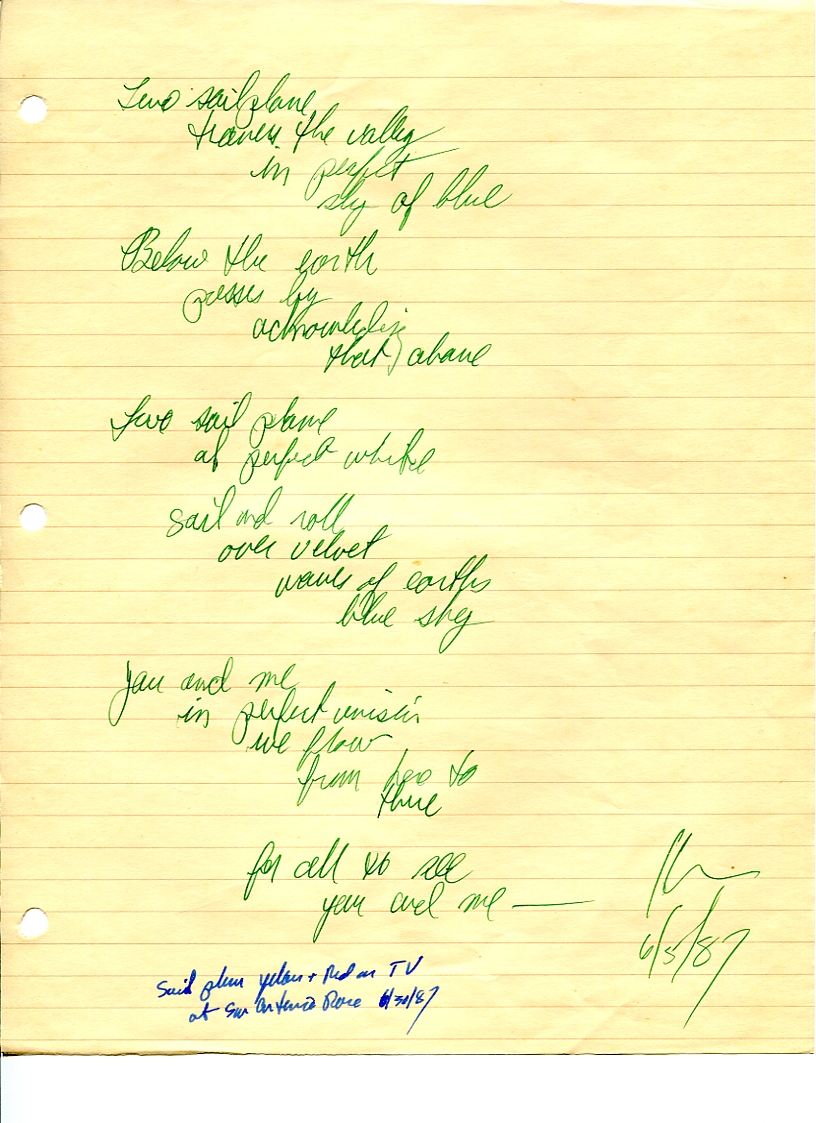 Two sailplane
the valley
in perfect
sky of blue
Below the earth
passes by
that above
Two sail plane
of perfect white
sail and roll
over velvet
waves of earths
blue sky
You and me
in perfect unison
we flow
from to
there
for all to see
you and me —
6/5/87
Sail plane yellow + Red on TV
at San Antonio Rose 6/30/87